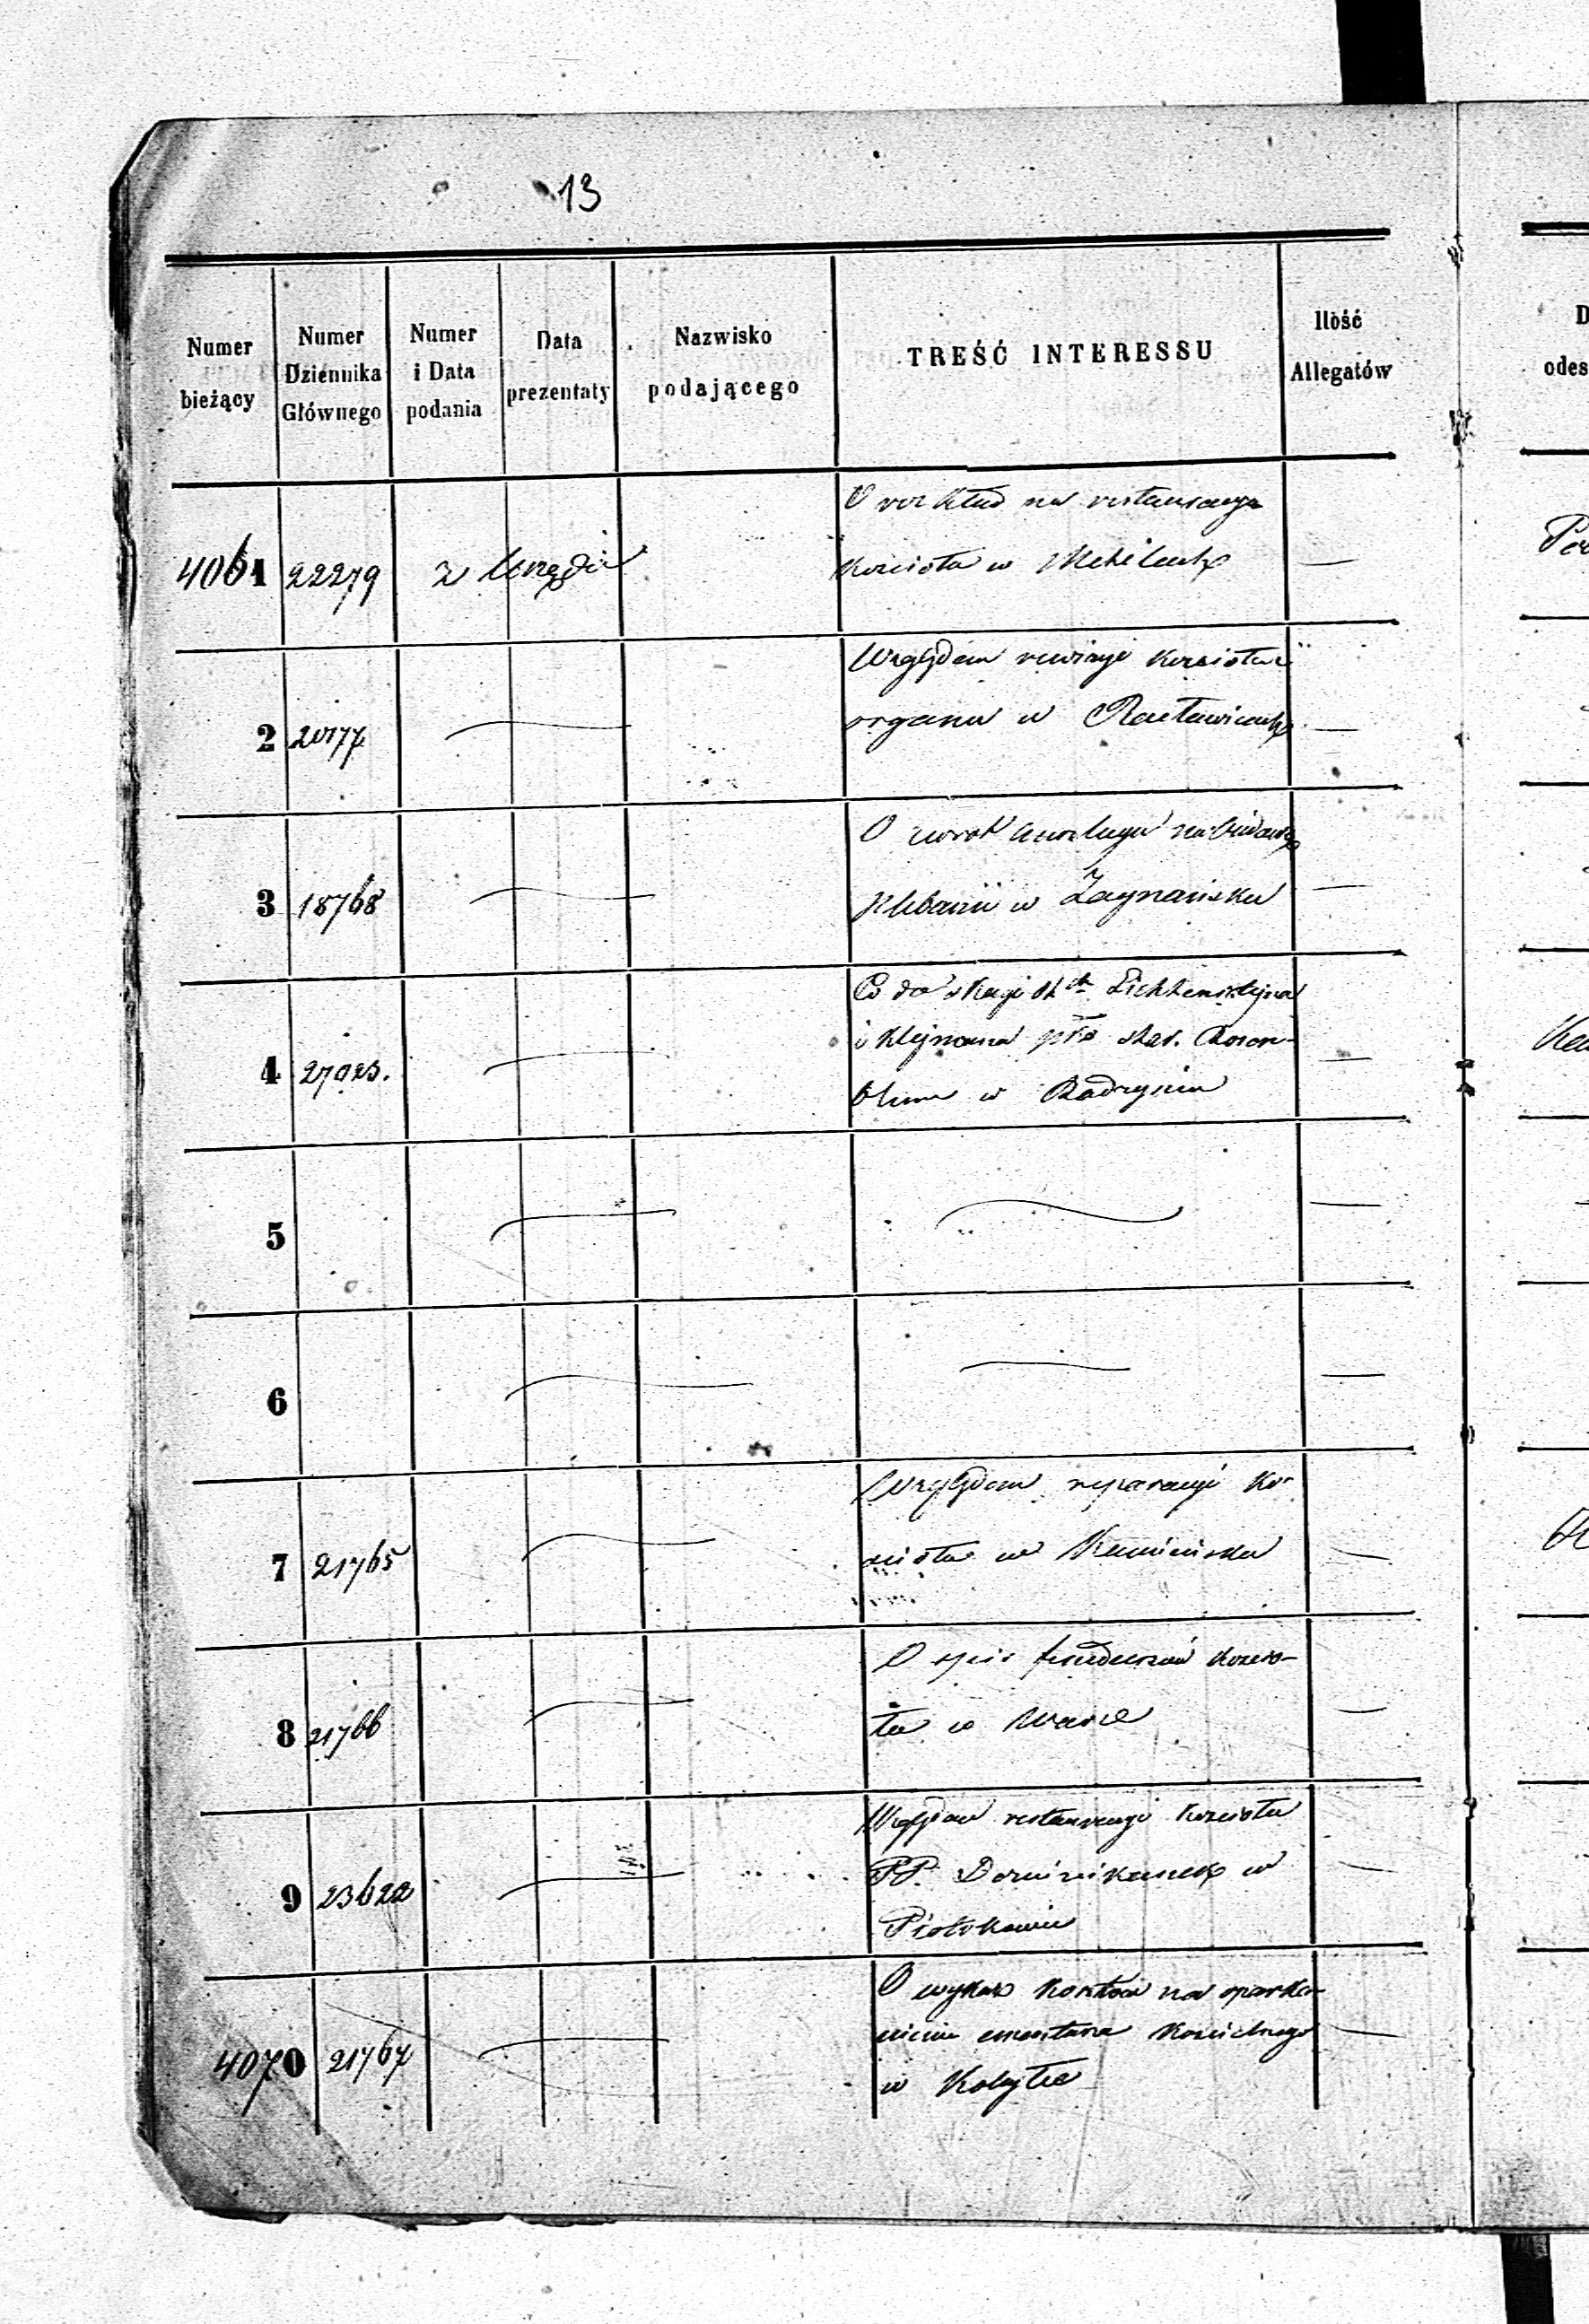 13
Numer bieżący
Numer Dziennika Głównego
Numer i Data podania
Data prezentaty
Nazwisko podającego
TREŚĆ INTERESSU
Ilość Allegatów
D
odes
4061 22279 z Urzędu
O rozkład na restauracyą
Kościoła w —
2
Względem rewizyi Kościoła i
organu w Racławicach
3 18768
O zwrot na budowę
Plebanii w Zagnańsku
4 27023.
Co do skargi Lichtensztejna
i Klejmana
w Radzyniu
5
6
7 21765
Względem reparacyi Ko-
ścioła w Kamińsku
8 21766
O spis funduszów Kościo-
ła w
9 23622
Względem restauracyi Kościoła
PP. Dominikanek w
Piotrkowie
4070 21767
O wykaz Kosztów na oparka-
nienie cmentarza Kościelnego
w Kobyłce